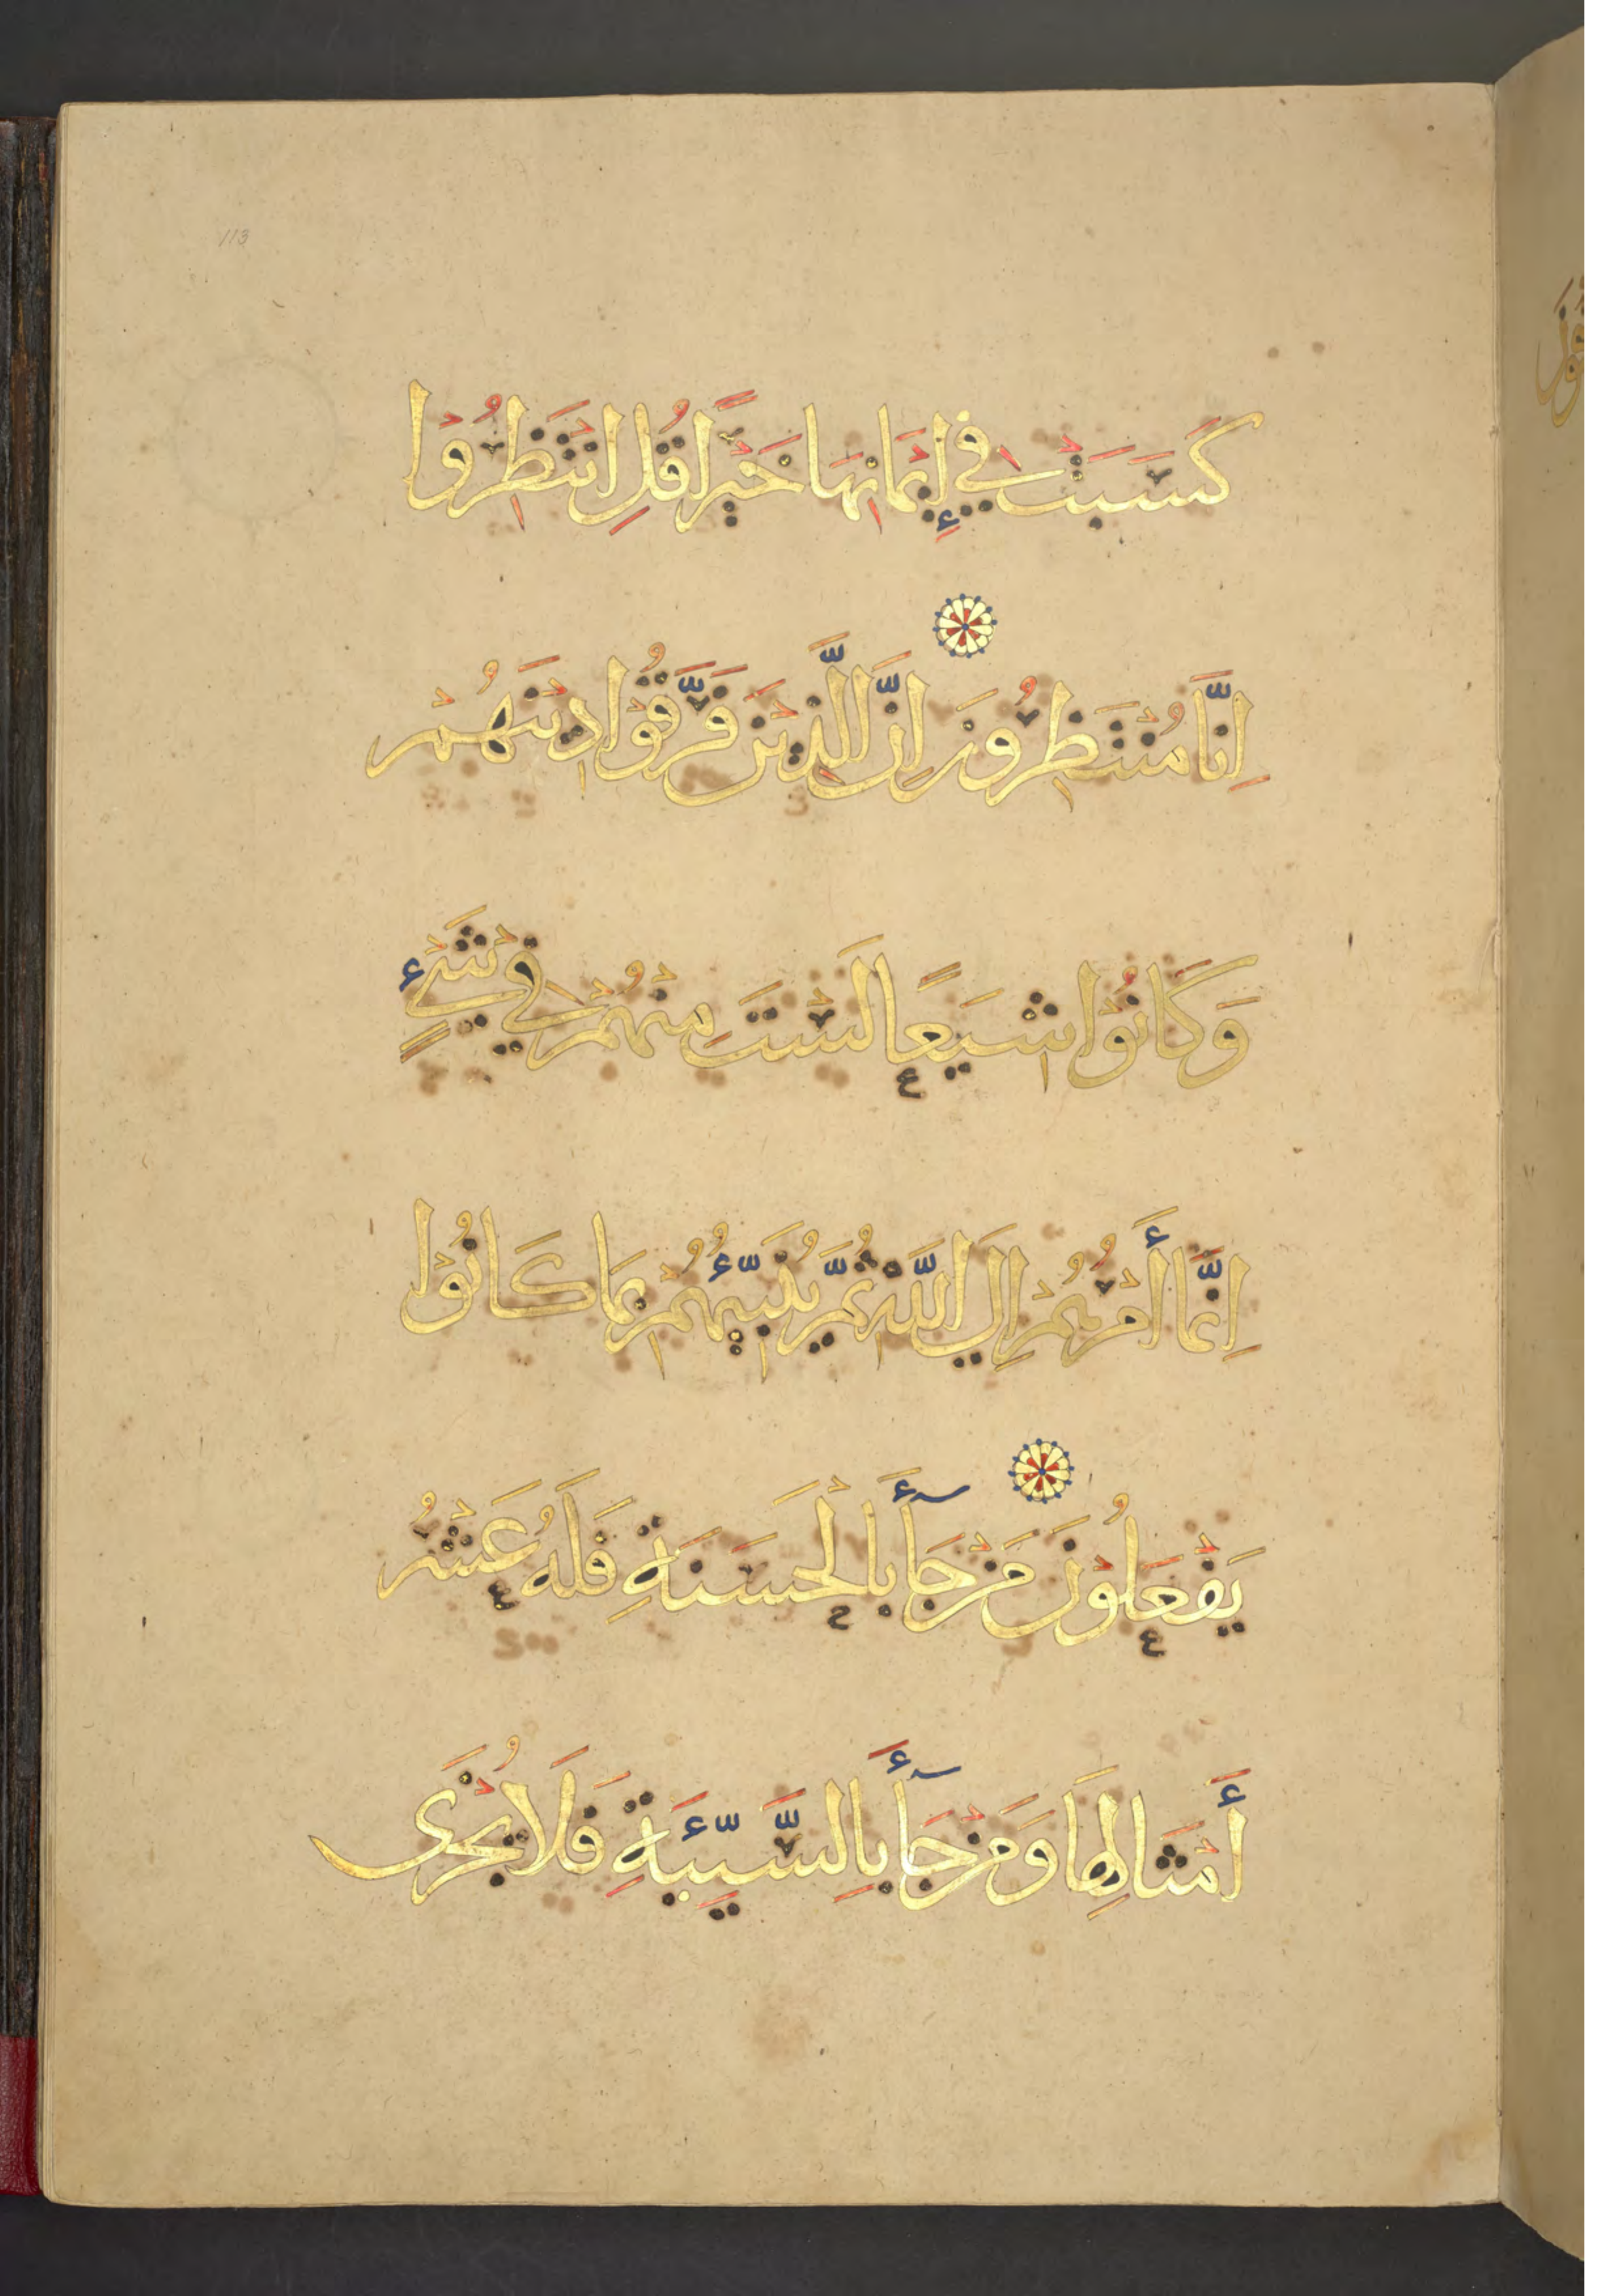 113
كَسَبَتْ فِي إِيمَانِهَا خَيْرًا قُلِ انْتَظِرُوْا
اِنَّا مُنْتَظِرُونَ اِنَّ الَّذِيْنَ فَرَّقُوْا دِيْنَهُمْ
وَكَانُوْا شِيَعًا لَسْتَ مِنْهُمْ فِيْ شَيْءٍ
اِنَّمَا أَمْرُهُمْ اِلَي اللَّهِ ثُمَّ يُنَبِّئُهُمْ بِمَا كَانُوْا
يَفْعَلُوْنَ مَنْ جَآأَ بِالْحَسَنَةِ فَلَهُ عَشْرُ
أَمْثَالِهَا وَمَنْ جَآأَ بِالسَّيِّئَةِ فَلَا يُجْزَى